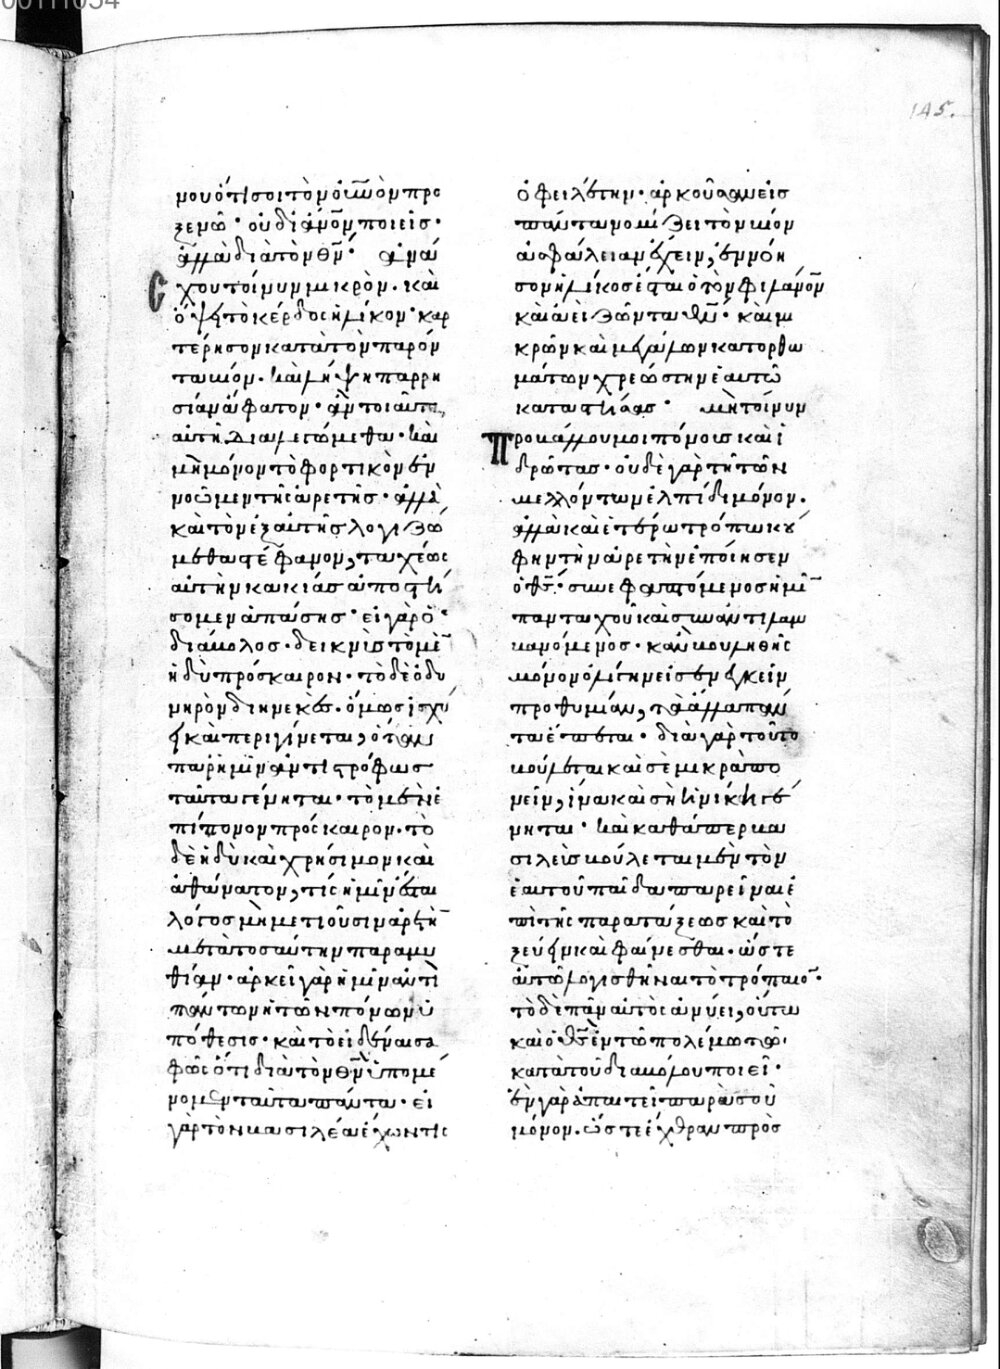 00111034
145.
μου ὅτι σοι τὸν οὐ̅ν̅ο̅ν προ
ξενῶ· οὐ δι' ἀν̅ο̅ν ποιεῖς·
ἀλλὰ διὰ τὸν θ̅ν̅· ἀνά
σχου τοίνυν μικρὸν· καὶ
ὄψη τὸ κέρδος ἡλίκον· καρ
τέρησον κατὰ τὸν παρόν
τα βίον· καὶ λήψη παρρη
σίαν ἄφατον· ἂν τοιαῦτα
αὐτῆ διαλεγώμεθα· καὶ
μὴ μόνον τὸ φορτικὸν ἐν
νοῶμεν τῆς ἀρετῆς· ἀλλὰ
καὶ τὸν ἐξ αὐτῆς λογιζώ
μεθα στέφανον, ταχέως
αὐτὴν κακίας ἀποστή
σομεν ἁπάσης· εἰ γὰρ ὁ
διάβολος· δεικνὺς τὸ μὲν
ἡδὺ πρόσκαιρον· τὸ δὲ ὀδυ
νηρὸν διηνεκὲς· ὅμως ἰσχύ
ει καὶ περιγίνεται, ὅταν
παρ' ἡμῖν ἀντιστρόφως
ταῦτα γένηται· τὸ μὲν ἐ
πίπονον πρόσκαιρον· τὸ
δὲ ἡδὺ καὶ χρήσιμον καὶ
ἀθάνατον, τίς ἡμῖν ἔσται
λόγος μὴ μετιοῦσιν ἀρετὴν
μετὰ τοσαύτην παραμυ
θίαν· ἀρκεῖ γὰρ ἡμῖν ἀντὶ
πάντων ἡ τῶν πόνων ὑ
πόθεσις· καὶ τὸ εἰδέναι σα
φῶς ὅτι διὰ τὸν θ̅ν̅ ὑπομέ
νομεν ταῦτα πάντα· εἰ
γὰρ τὸν βασιλέα ἔχων τις
ὀφειλέτην· ἀρκοῦσαν εἰς
πάντα νομίζει τὸν βίον
ἀσφάλειαν ἔχειν, ἐννόη
σον ἡλίκος ἔσται ὁ τὸν φιλάν̅ο̅ν
καὶ ἀεὶ ζῶντα θ̅ν̅· καὶ μι
κρῶν καὶ μεγάλων κατορθω
μάτων χρεώστην ἑαυτῶ
καταστήσας· μὴ τοίνυν
προβάλλου μοι πόνους καὶ ἱ
δρῶτας· οὐδὲ γὰρ τῆ τῶν
μελλόντων ἐλπίδι μόνον·
ἀλλὰ καὶ ἑτέρω τρόπω κού
φην τὴν ἀρετὴν ἐποίησεν
ὁ θ̅ς̅· συνεφαπτόμενος ἡμῖν
πανταχοῦ καὶ συναντιλαμ
βανόμενος· κἂν βουληθῆς
μόνον ὀλίγην εἰσενεγκεῖν
προθυμίαν, τὰ ἄλλα πάν
τα ἕπεται· διὰ γὰρ τοῦτο
βούλεται καὶ σὲ μικρὰ πο
νεῖν, ἵνα καὶ σὴ ἡ νίκη γέ
νηται· καὶ καθάπερ βα
σιλεὺς βούλεται μὲν τὸν
ἑαυτοῦ παῖδα παρεῖναι ἐ
πὶ τῆς παρατάξεως καὶ το
ξεύειν καὶ φαίνεσθαι· ὥστε
αὐτῶ λογισθῆναι τὸ τρόπαιον·
τὸ δὲ πᾶν αὐτὸς ἀνύει, οὕτω
καὶ ὁ θ̅ς̅ ἐν τῶ πολέμω τῶ
κατὰ τοῦ διαβόλου ποιεῖ·
ἓν γὰρ ἀπαιτεῖ παρὰ σοῦ
μόνον· ὥστε ἔχθραν πρὸς